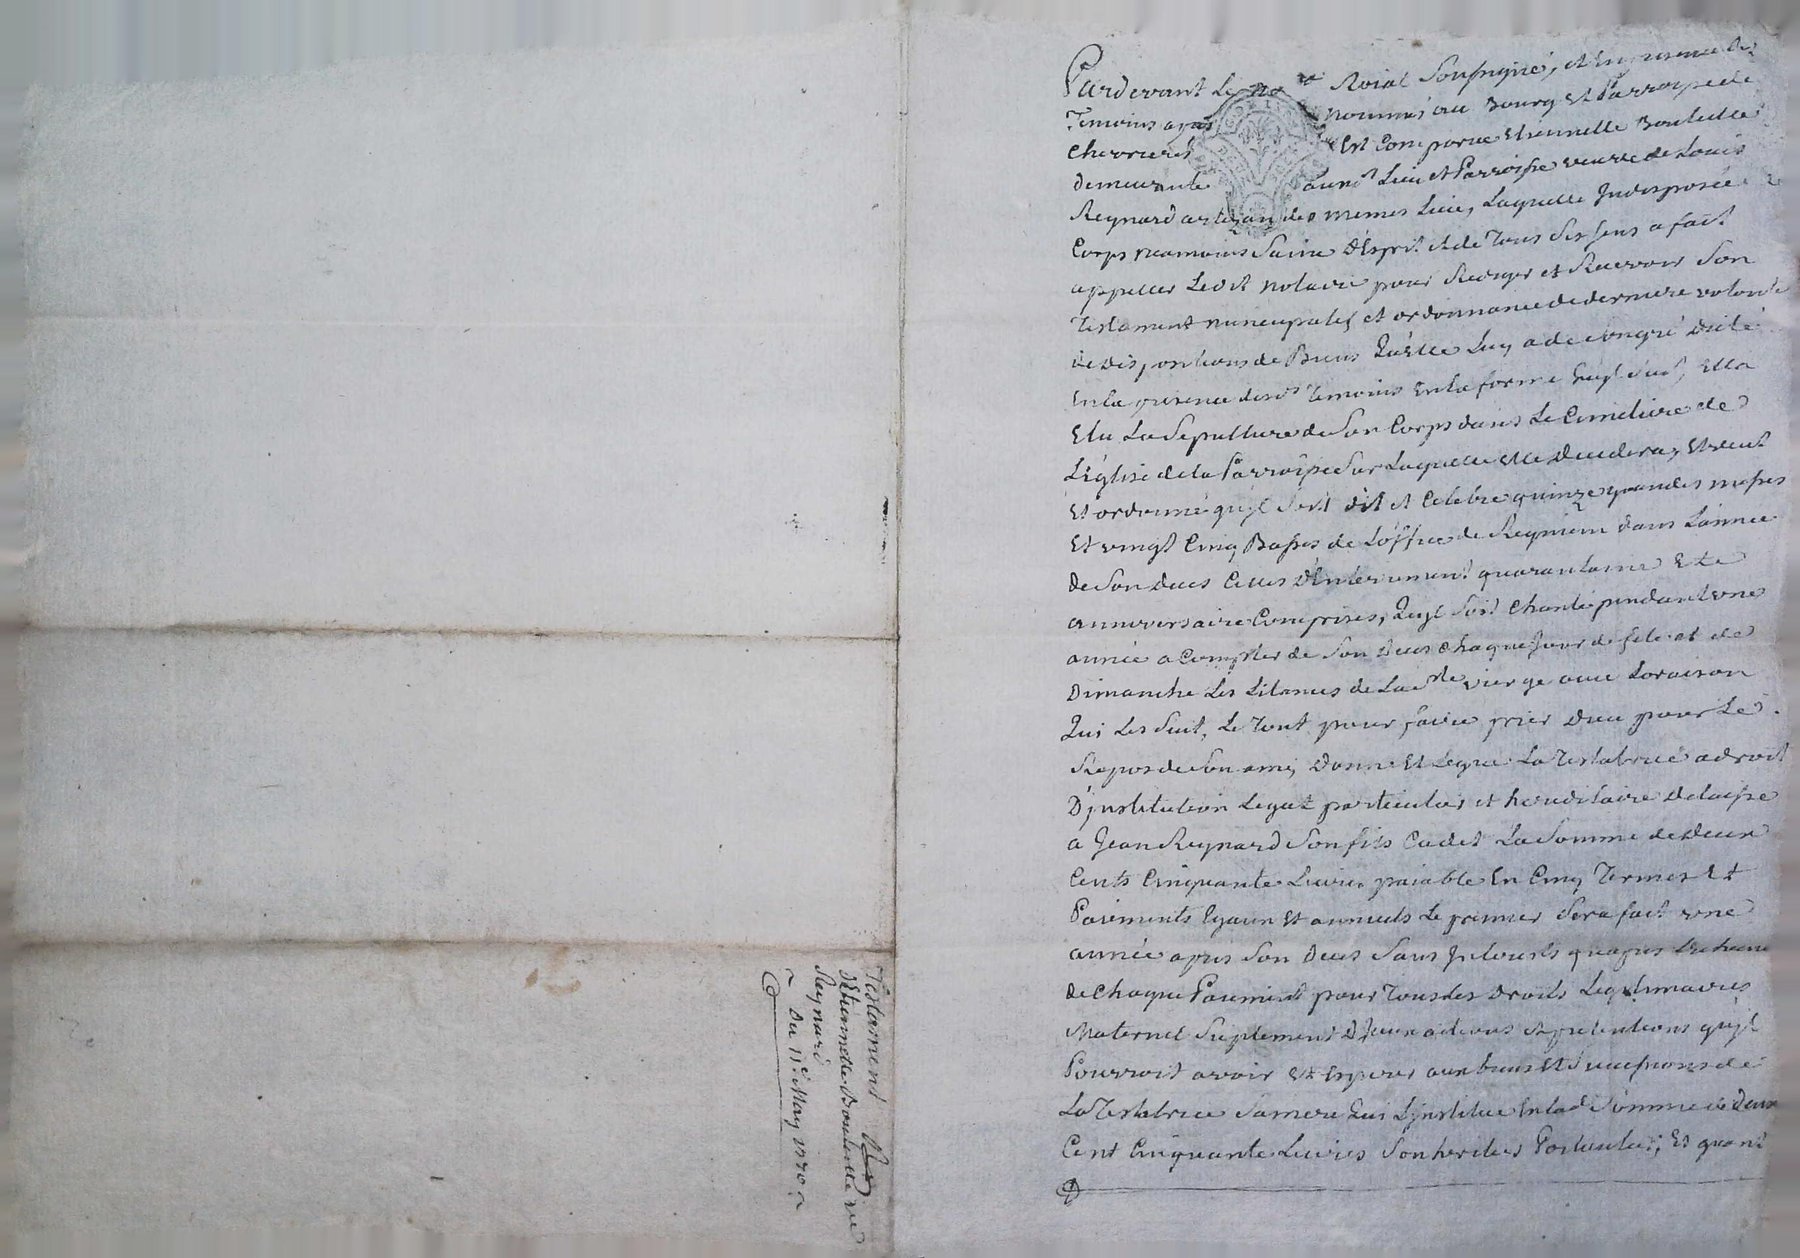 Pardevant Le no.re Roial Soussigné, et En presence des
Temoins apres nommés au Bourg et Parroisse de
Chevrieres Est Comparue Etiennette Boulette
demeurante aud.t Lieu et Parroisse veuve de Louis
Reynard artizan des memes Lieu, Laquelle Indisposée de
Corps neamoins Saine D'Esprit et de Tous Ses Sens a fait
appeller Ledit Notaire pour Rediger et Recevoir Son
Testament nuncupatif et ordonnance de derniere volonté
de Dispositions de Biens Qu'Elle Luy a de Son gré dicté
En la presence desd.s Temoins En la forme Suit, Ella
Elu La Sepulture de Son Corps dans Le Cimetiere de
L'Eglise de la Parroisse Sur Laquelle Elle Decedera, Et veut
Et ordonne qu'il Soit dit et Celebré quinze grandes messes
Et vingt Cinq Basses de L'office de Requiem dans L'année
de Son Deces Celles D'Enterrement quarantaine Et
anniversaire Comprises, Qu'il Soit Chanté pendant une
année a Compter de Son Deces Chaque Jour de fete et de
Dimanche Les Litanies de La S.te Vierge avec L'oraison
Qui Les Suit, Le Tout pour faire prier Dieu pour Le
Repos de Son ame, Donne Et Legue La Testatrice a droit
D'institution Legat particulier et hereditaire Delaisse
a Jean Reynard Son fils Cadet La Somme de Deux
Cents Cinquante Livres païable En Cinq Termes Et
Païements Egaux Et annuels Le premier Sera fait une
année apres Son Deces Sans Interests qu'apres
de Chaque Païement pour Tous Les Droits Legitimaires
Maternel Suplement D'Iceux actions et pretentions qu'il
Pourroit avoir Et Esperer aux biens Et Successions de
La Testatrice Sa mere Qui L'institue En lad. Somme de Deux
Cent Cinquante Livres Son heritier Particulier, Et quant
Testament
d'Etiennette Boulette v.e
Reynard
Du 11.e May 1770